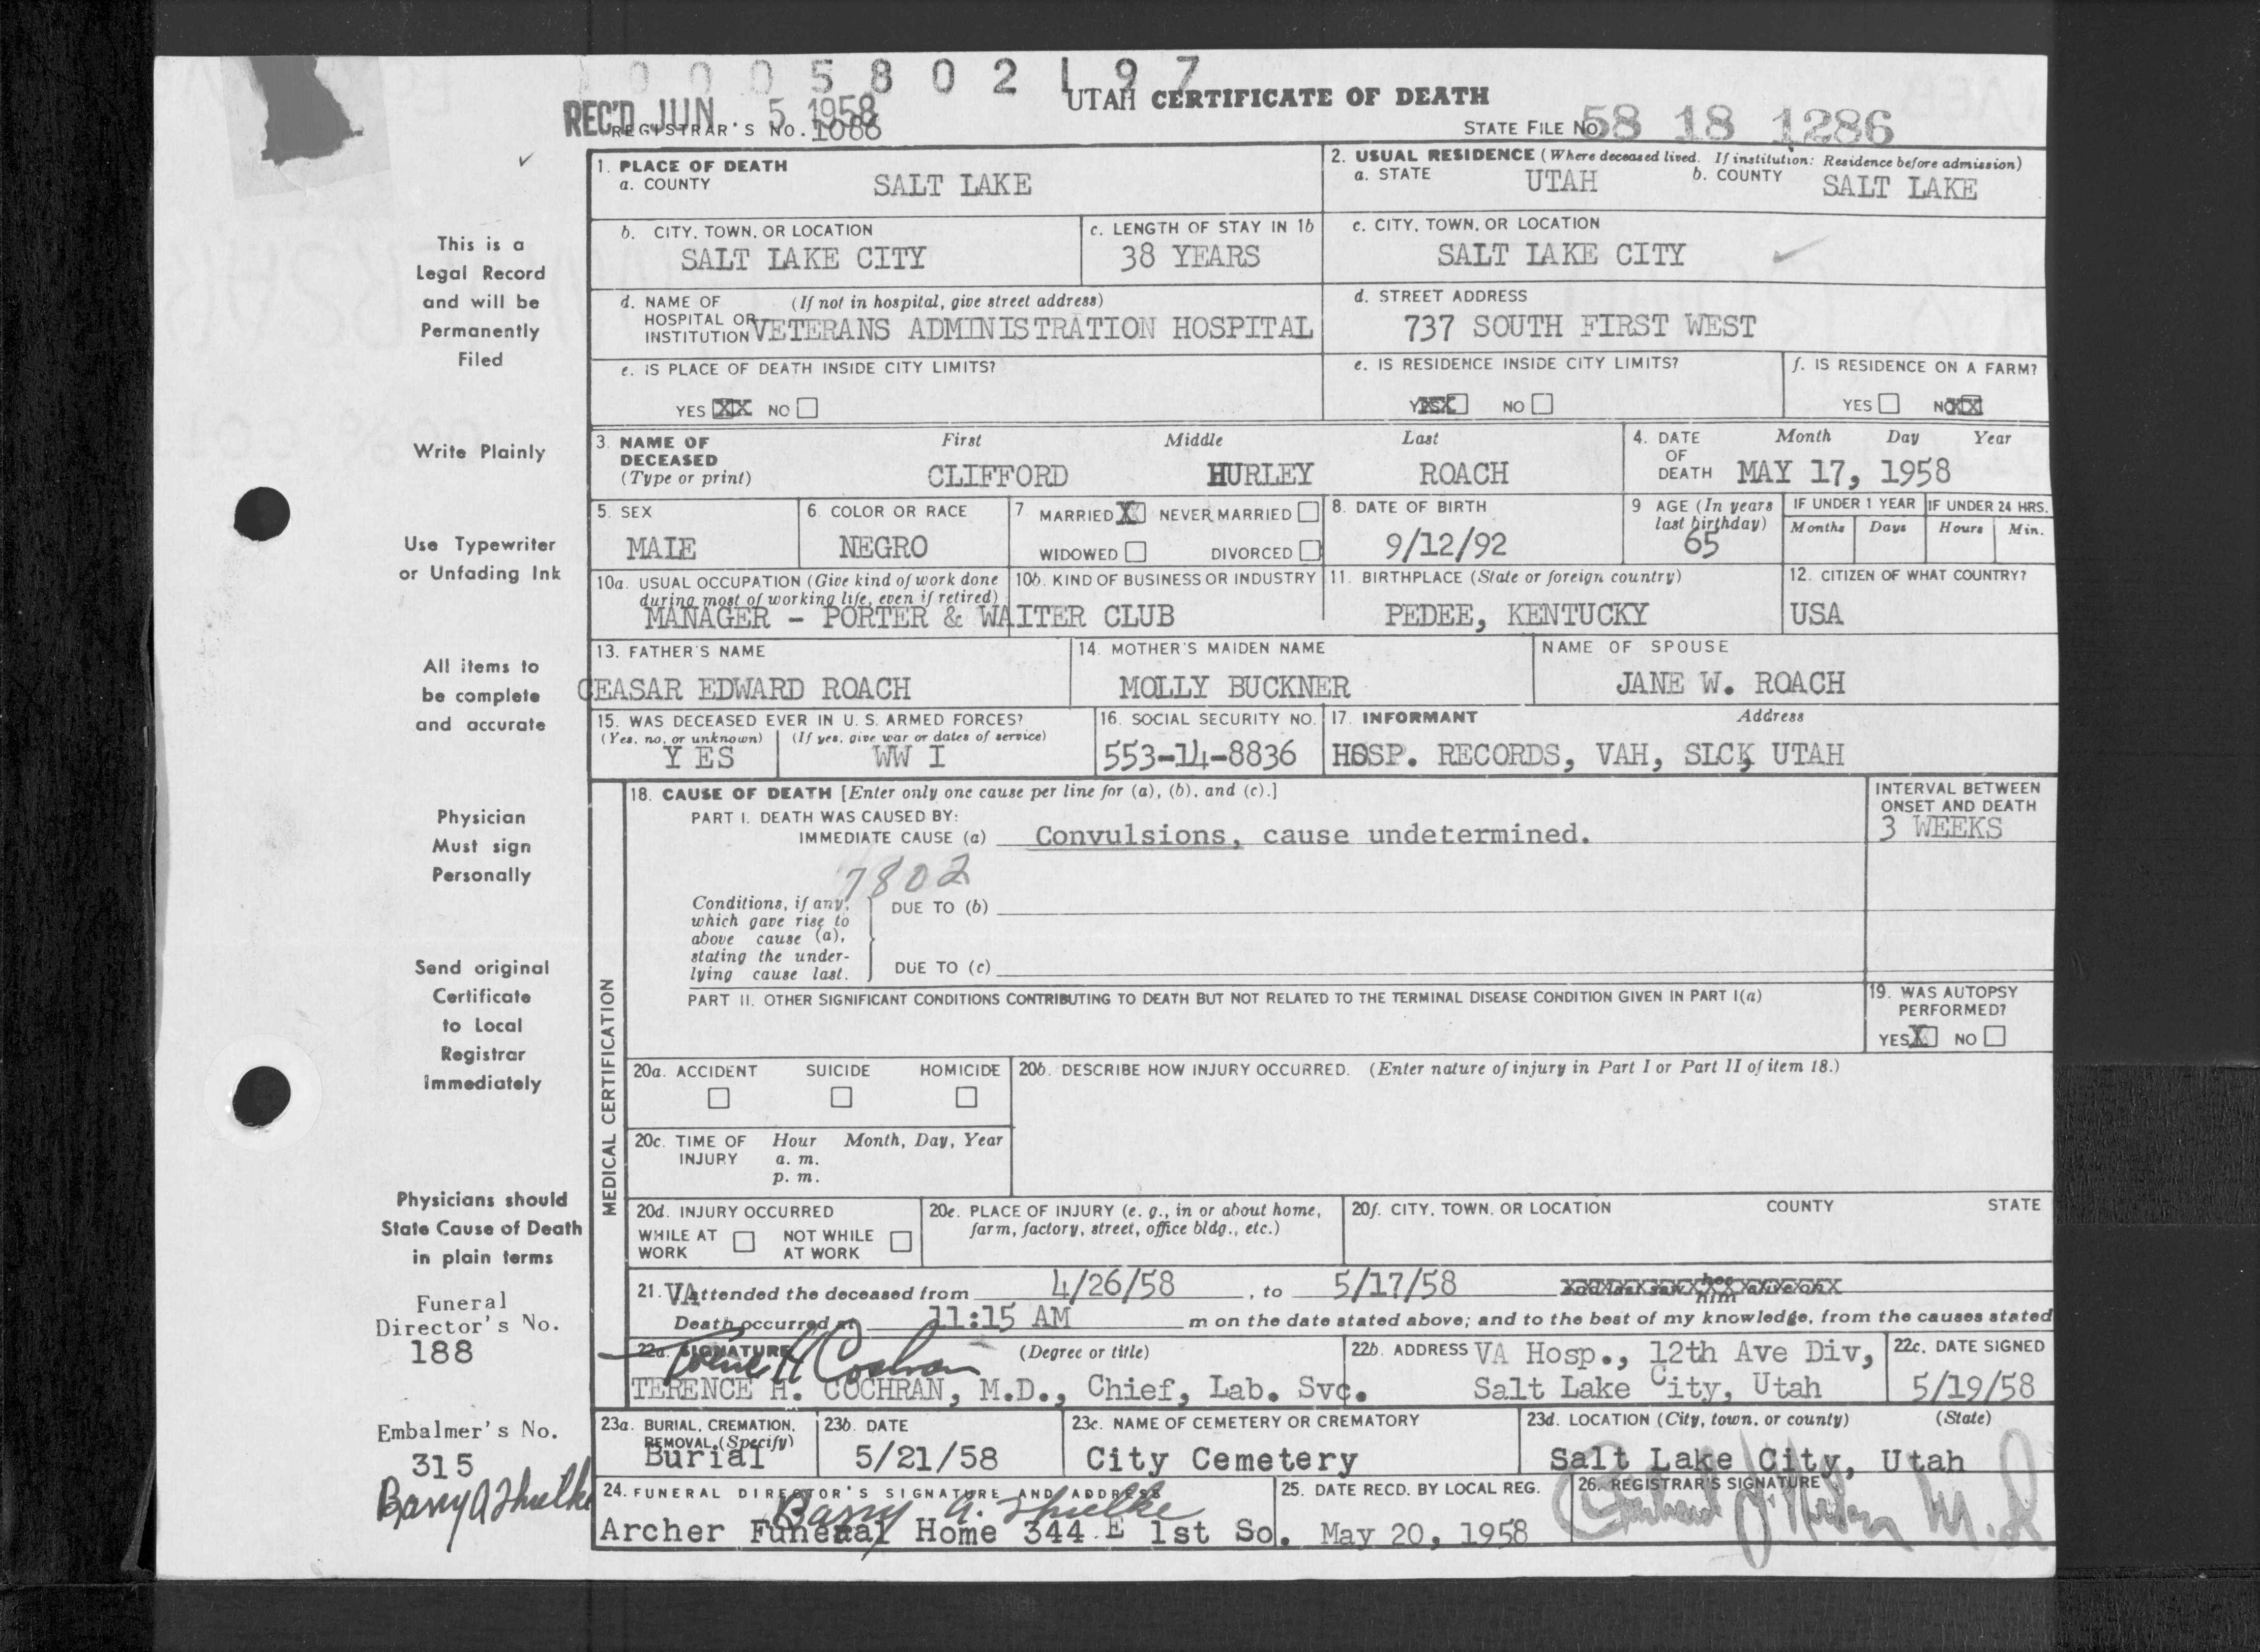 0 0 0 5 8 0 2 1 9 7
UTAH CERTIFICATE OF DEATH
REC'D JUN 5 1958
REGISTRAR'S NO. 1086
STATE FILE NO. 58 18 1286
1. PLACE OF DEATH
a. COUNTY SALT LAKE
2. USUAL RESIDENCE (Where deceased lived. If institution: Residence before admission)
a. STATE UTAH b. COUNTY SALT LAKE
b. CITY, TOWN, OR LOCATION
SALT LAKE CITY
c. LENGTH OF STAY IN 1b
38 YEARS
c. CITY, TOWN, OR LOCATION
SALT LAKE CITY
d. NAME OF (If not in hospital, give street address)
HOSPITAL OR
INSTITUTION VETERANS ADMINISTRATION HOSPITAL
d. STREET ADDRESS
737 SOUTH FIRST WEST
e. IS PLACE OF DEATH INSIDE CITY LIMITS?
YES XX NO
e. IS RESIDENCE INSIDE CITY LIMITS?
YES XX NO
f. IS RESIDENCE ON A FARM?
YES NO XX
3. NAME OF
DECEASED
(Type or print)
First Middle Last
CLIFFORD HURLEY ROACH
4. DATE
OF
DEATH
Month Day Year
MAY 17, 1958
5. SEX
MALE
6. COLOR OR RACE
NEGRO
7 MARRIED X NEVER MARRIED
WIDOWED DIVORCED
8. DATE OF BIRTH
9/12/92
9 AGE (In years
last birthday)
65
IF UNDER 1 YEAR
Months Days
IF UNDER 24 HRS.
Hours Min.
10a. USUAL OCCUPATION (Give kind of work done
during most of working life, even if retired)
10b. KIND OF BUSINESS OR INDUSTRY
MANAGER - PORTER & WAITER CLUB
11. BIRTHPLACE (State or foreign country)
PEDEE, KENTUCKY
12. CITIZEN OF WHAT COUNTRY?
USA
13. FATHER'S NAME
CEASAR EDWARD ROACH
14. MOTHER'S MAIDEN NAME
MOLLY BUCKNER
NAME OF SPOUSE
JANE W. ROACH
15. WAS DECEASED EVER IN U. S. ARMED FORCES?
(Yes, no, or unknown) (If yes, give war or dates of service)
YES WW I
16. SOCIAL SECURITY NO.
553-14-8836
17. INFORMANT Address
HOSP. RECORDS, VAH, SLC, UTAH
MEDICAL CERTIFICATION
18. CAUSE OF DEATH [Enter only one cause per line for (a), (b), and (c).]
PART I. DEATH WAS CAUSED BY:
IMMEDIATE CAUSE (a) Convulsions, cause undetermined.
INTERVAL BETWEEN
ONSET AND DEATH
3 WEEKS
7802
Conditions, if any,
which gave rise to
above cause (a),
stating the under-
lying cause last.
DUE TO (b)
DUE TO (c)
PART II. OTHER SIGNIFICANT CONDITIONS CONTRIBUTING TO DEATH BUT NOT RELATED TO THE TERMINAL DISEASE CONDITION GIVEN IN PART I(a)
19. WAS AUTOPSY
PERFORMED?
YES X NO
20a. ACCIDENT SUICIDE HOMICIDE
20b. DESCRIBE HOW INJURY OCCURRED. (Enter nature of injury in Part I or Part II of item 18.)
20c. TIME OF Hour Month, Day, Year
INJURY a. m.
p. m.
20d. INJURY OCCURRED
WHILE AT NOT WHILE
WORK AT WORK
20e. PLACE OF INJURY (e. g., in or about home,
farm, factory, street, office bldg., etc.)
20f. CITY, TOWN, OR LOCATION COUNTY STATE
21. VA attended the deceased from 4/26/58, to 5/17/58 and last saw her him alive on
Death occurred at 11:15 AM m on the date stated above; and to the best of my knowledge, from the causes stated
22a. SIGNATURE (Degree or title)
Terence H Cochran
TERENCE H. COCHRAN, M.D., Chief, Lab. Svc.
22b. ADDRESS VA Hosp., 12th Ave Div,
Salt Lake City, Utah
22c. DATE SIGNED
5/19/58
23a. BURIAL, CREMATION,
REMOVAL, (Specify)
Burial
23b. DATE
5/21/58
23c. NAME OF CEMETERY OR CREMATORY
City Cemetery
23d. LOCATION (City, town, or county) (State)
Salt Lake City, Utah
24. FUNERAL DIRECTOR'S SIGNATURE AND ADDRESS
Barry A. Shulke
Archer Funeral Home 344 E 1st So.
25. DATE RECD. BY LOCAL REG.
May 20, 1958
26. REGISTRAR'S SIGNATURE
M.D.
This is a
Legal Record
and will be
Permanently
Filed
Write Plainly
Use Typewriter
or Unfading Ink
All items to
be complete
and accurate
Physician
Must sign
Personally
Send original
Certificate
to Local
Registrar
Immediately
Physicians should
State Cause of Death
in plain terms
Funeral
Director's No.
188
Embalmer's No.
315
Barry A Shulke